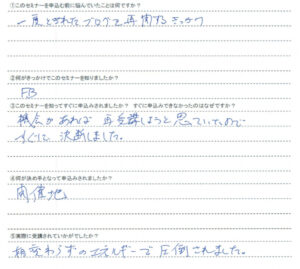 ①このセミナーを申込む前に悩んでいたことは何ですか？
一度とざされたブログを再開するきっかけ
②何がきっかけでこのセミナーを知りましたか？
FB
③このセミナーを知ってすぐに申込みされましたか？ すぐに申込みできなかったのはなぜですか？
機会があれば再受講しようと思っていたので
すぐに決断しました。
④何が決め手となって申込みされましたか？
開催地。
⑤実際に受講されていかがでしたか？
相変わらずのエネルギーで圧倒されました。